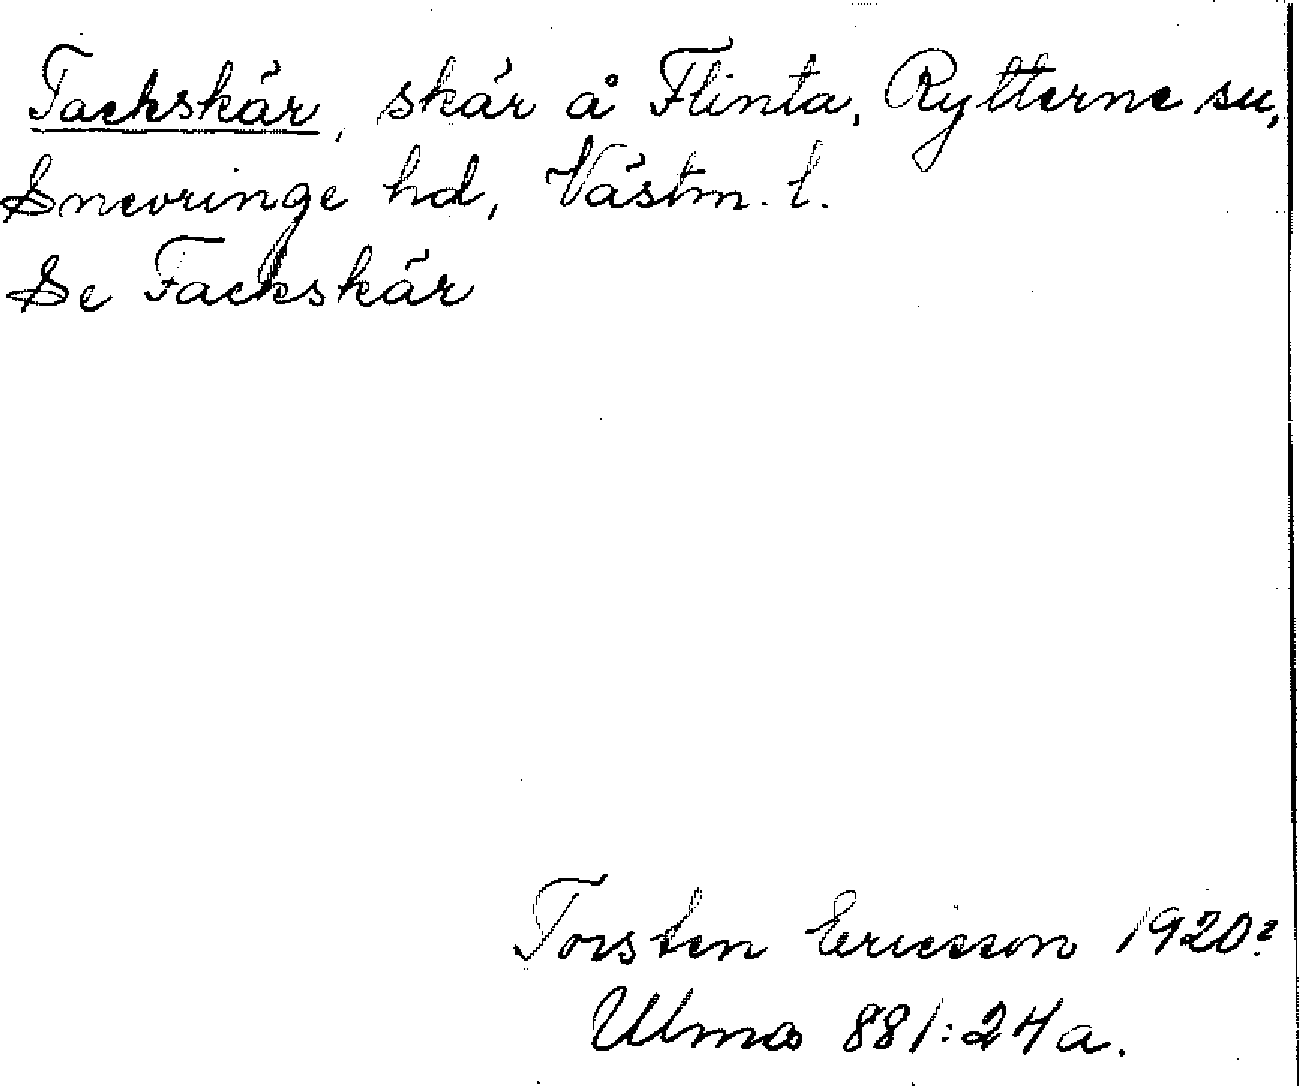 Tackskär, skär å Flinta, Rytterne su,
Snevringe hd, Västm. l.
Se Fackskär
Torsten Ericsson 1920?
Ulma 881:24a.